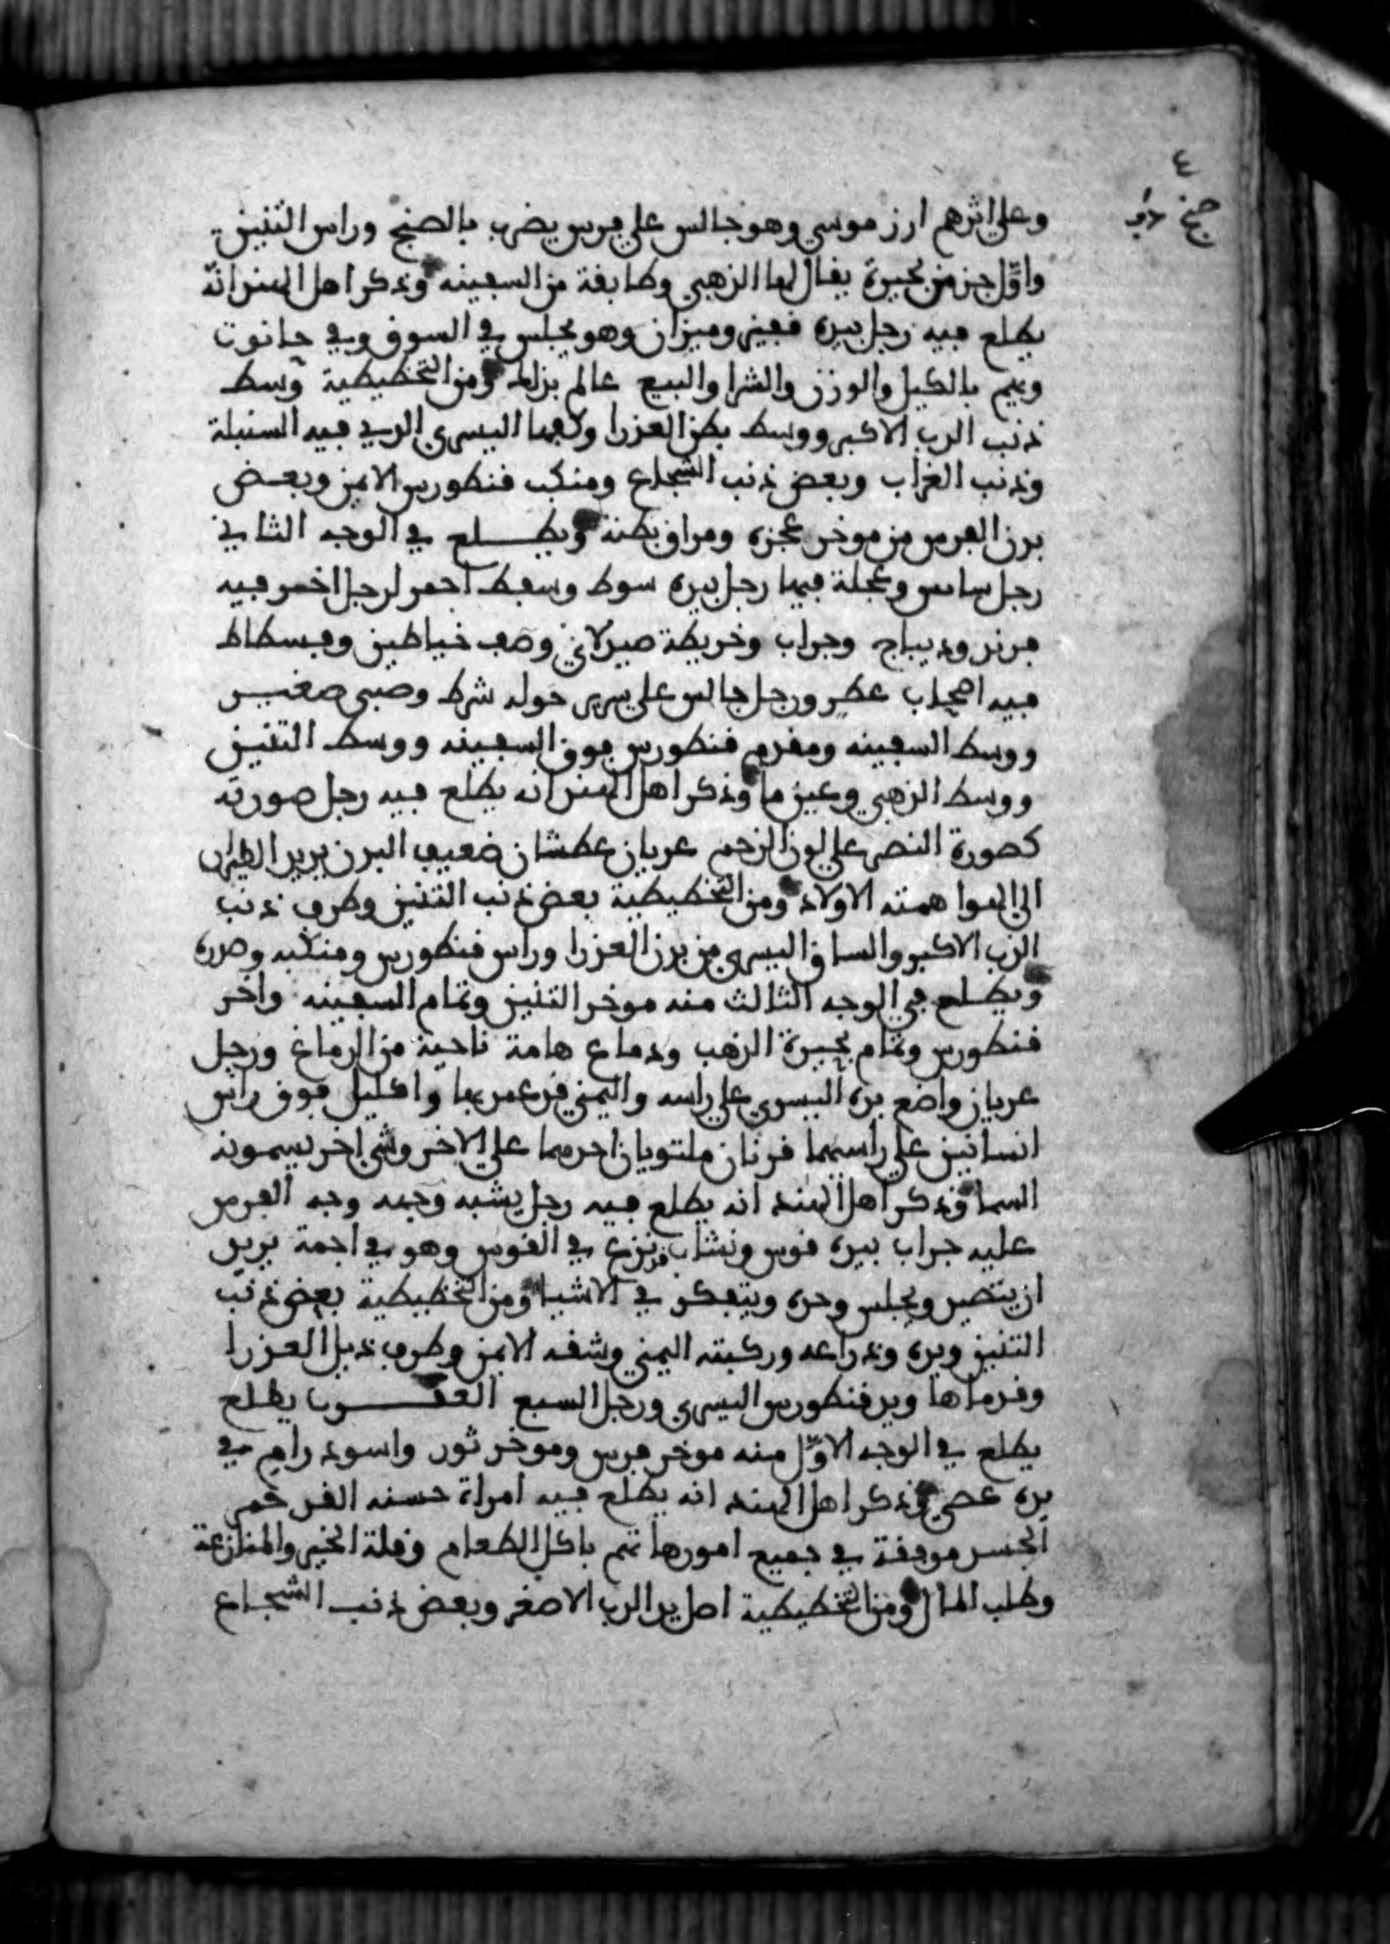 ٤
وعلى اثرهم ارز موسى وهو جالس على فرس يضرب بالصنج وراس التنين
واوّل جز من بحيرة يقال لها الذهبي وطايفة من السفينه وذكر اهل الهند انّه
يطلع فيه رجل بيده قفيز وميزان وهو يجلس في السوق وفي حانوت
ويهم بالكيل والوزن والشرا والبيع عالم بذلك ومن التخطيطية وسط
ذنب الدب الاكبر ووسط بطن العذرا وكفها اليسرى الذي فيه السنبلة
وذنب الغراب وبعض ذنب الشجاع ومنكب قنطورس الايمن وبعض
بدن الفرس من موخر عجزه ومراق بطنه ويطلع في الوجه الثاني
رجل سايس وعجلة فيها رجل بيده سوط وسفط احمر لرجل اخضر فيه
فرند وديباج وجراب وخريطة صيدلاني وصف خياطين وفسطاط
فيه اصحاب عطر ورجل جالس على سرير حوله شرط وصبي صغير
ووسط السفينه ومقدم قنطورس فوق السفينه ووسط التنين
ووسط الذهبي وعين ما وذكر اهل الهند انه يطلع فيه رجل صورته
كصورة النصر على لون الزخم عريان عطشان ضعيف البدن يريد الطيران
الى الهوا همته الاولاد ومن التخطيطية بعض ذنب التنين وطرف ذنب
الدب الاكبر والساق اليسرى من بدن العذرا وراس قنطورس ومنكبه وصدره
ويطلع في الوجه الثالث منه موخر التنين وتمام السفينه واخر
قنطورس وتمام بحيرة الذهب ودماغ هامة ناحية من الدماغ ورجل
عريان واضع يده اليسرى على راسه واليمنى قد عمر بها واكليل فوق راس
انسانين على راسيهما قرنان ملتويان احدهما على الاخر وشي اخر يسمونه
السما وذكر اهل الهند انه يطلع فيه رجل يشبه وجهه وجه الفرس
عليه جراب بيده قوس ونشاب قد نزع في القوس وهو في اجمة يريد
ان يتصيد ويجلس وحده ويتفكر في الاشيا ومن التخطيطية بعض ذنب
التنين ويده وذراعه وركبته اليمنى وشقه الايمن وطرف ذيل العذرا
وقدماها ويد قنطورس اليسرى ورجل السبع العقرب يطلع
يطلع في الوجه الاوّل منه موخر فرس وموخر ثور واسود رام في
يده عصى وذكر اهل الهند انه يطلع فيه امراة حسنه القد ضخم
الجسد موفقة في جميع امورها تهم باكل الطعام وقلة الخير والمنازعة
وطلب المال ومن التخطيطية اصل يد الدب الاصغر وبعض ذنب الشجاع